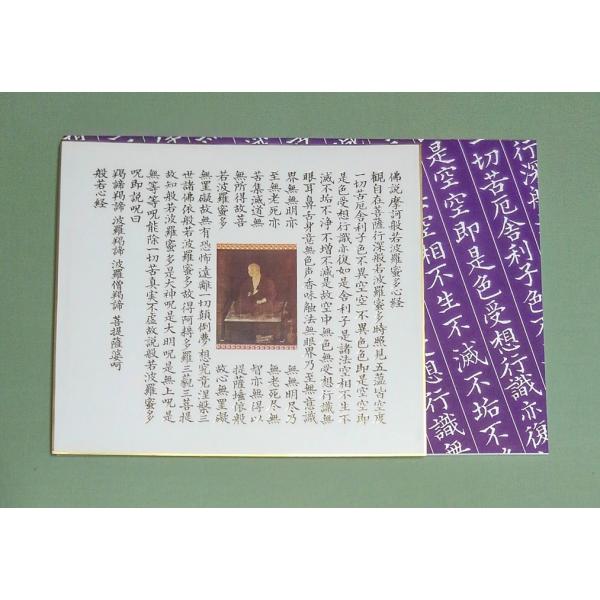 佛説摩訶般若波羅蜜多心経
観自在菩薩行深般若波羅蜜多時照見五蘊皆空度
一切苦厄舎利子色不異空空不異色色即是空空即
是色受想行識亦復如是舎利子是諸法空相不生不
滅不垢不浄不増不減是故空中無色無受想行識無
眼耳鼻舌身意無色声香味触法無眼界乃至無意識
界無無明亦 無無明尽乃
至無老死亦 無老死尽無
苦集滅道無 智亦無得以
無所得故菩 提薩埵依般
若波羅蜜多 故心無罣礙
無罣礙故無有恐怖遠離一切顛倒夢想究竟涅槃三
世諸佛依般若波羅蜜多故得阿耨多羅三藐三菩提
故知般若波羅蜜多是大神呪是大明呪是無上呪是
無等等呪能除一切苦真実不虚故説般若波羅蜜多
呪即説呪曰
羯諦羯諦 波羅羯諦 波羅僧羯諦 菩提薩婆呵
般若心経
行深般
一切苦厄舎利子色不
是空空即是色受想行識亦復
空相不生不滅不垢不
行識無